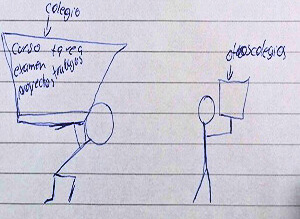 colegio
Curso tarea
examen trabajos
proyectos
otros colegios